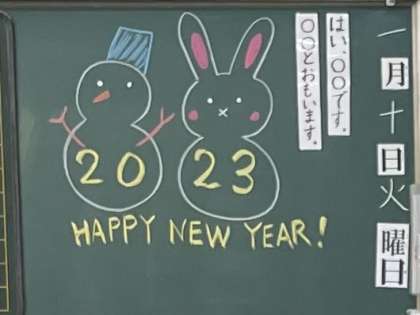 一月十日火曜日
はい、〇〇です。
〇〇とおもいます。
20 23
HAPPY NEW YEAR!